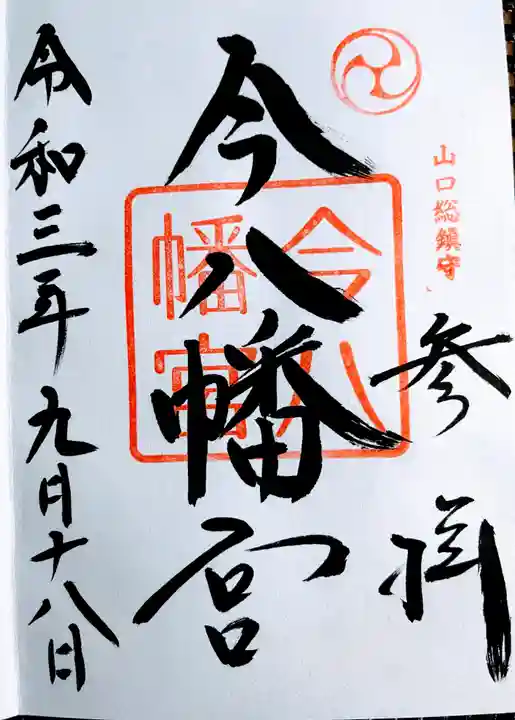 山口総鎮守
参拝
今八幡宮
今八幡宮
令和三年九月十八日